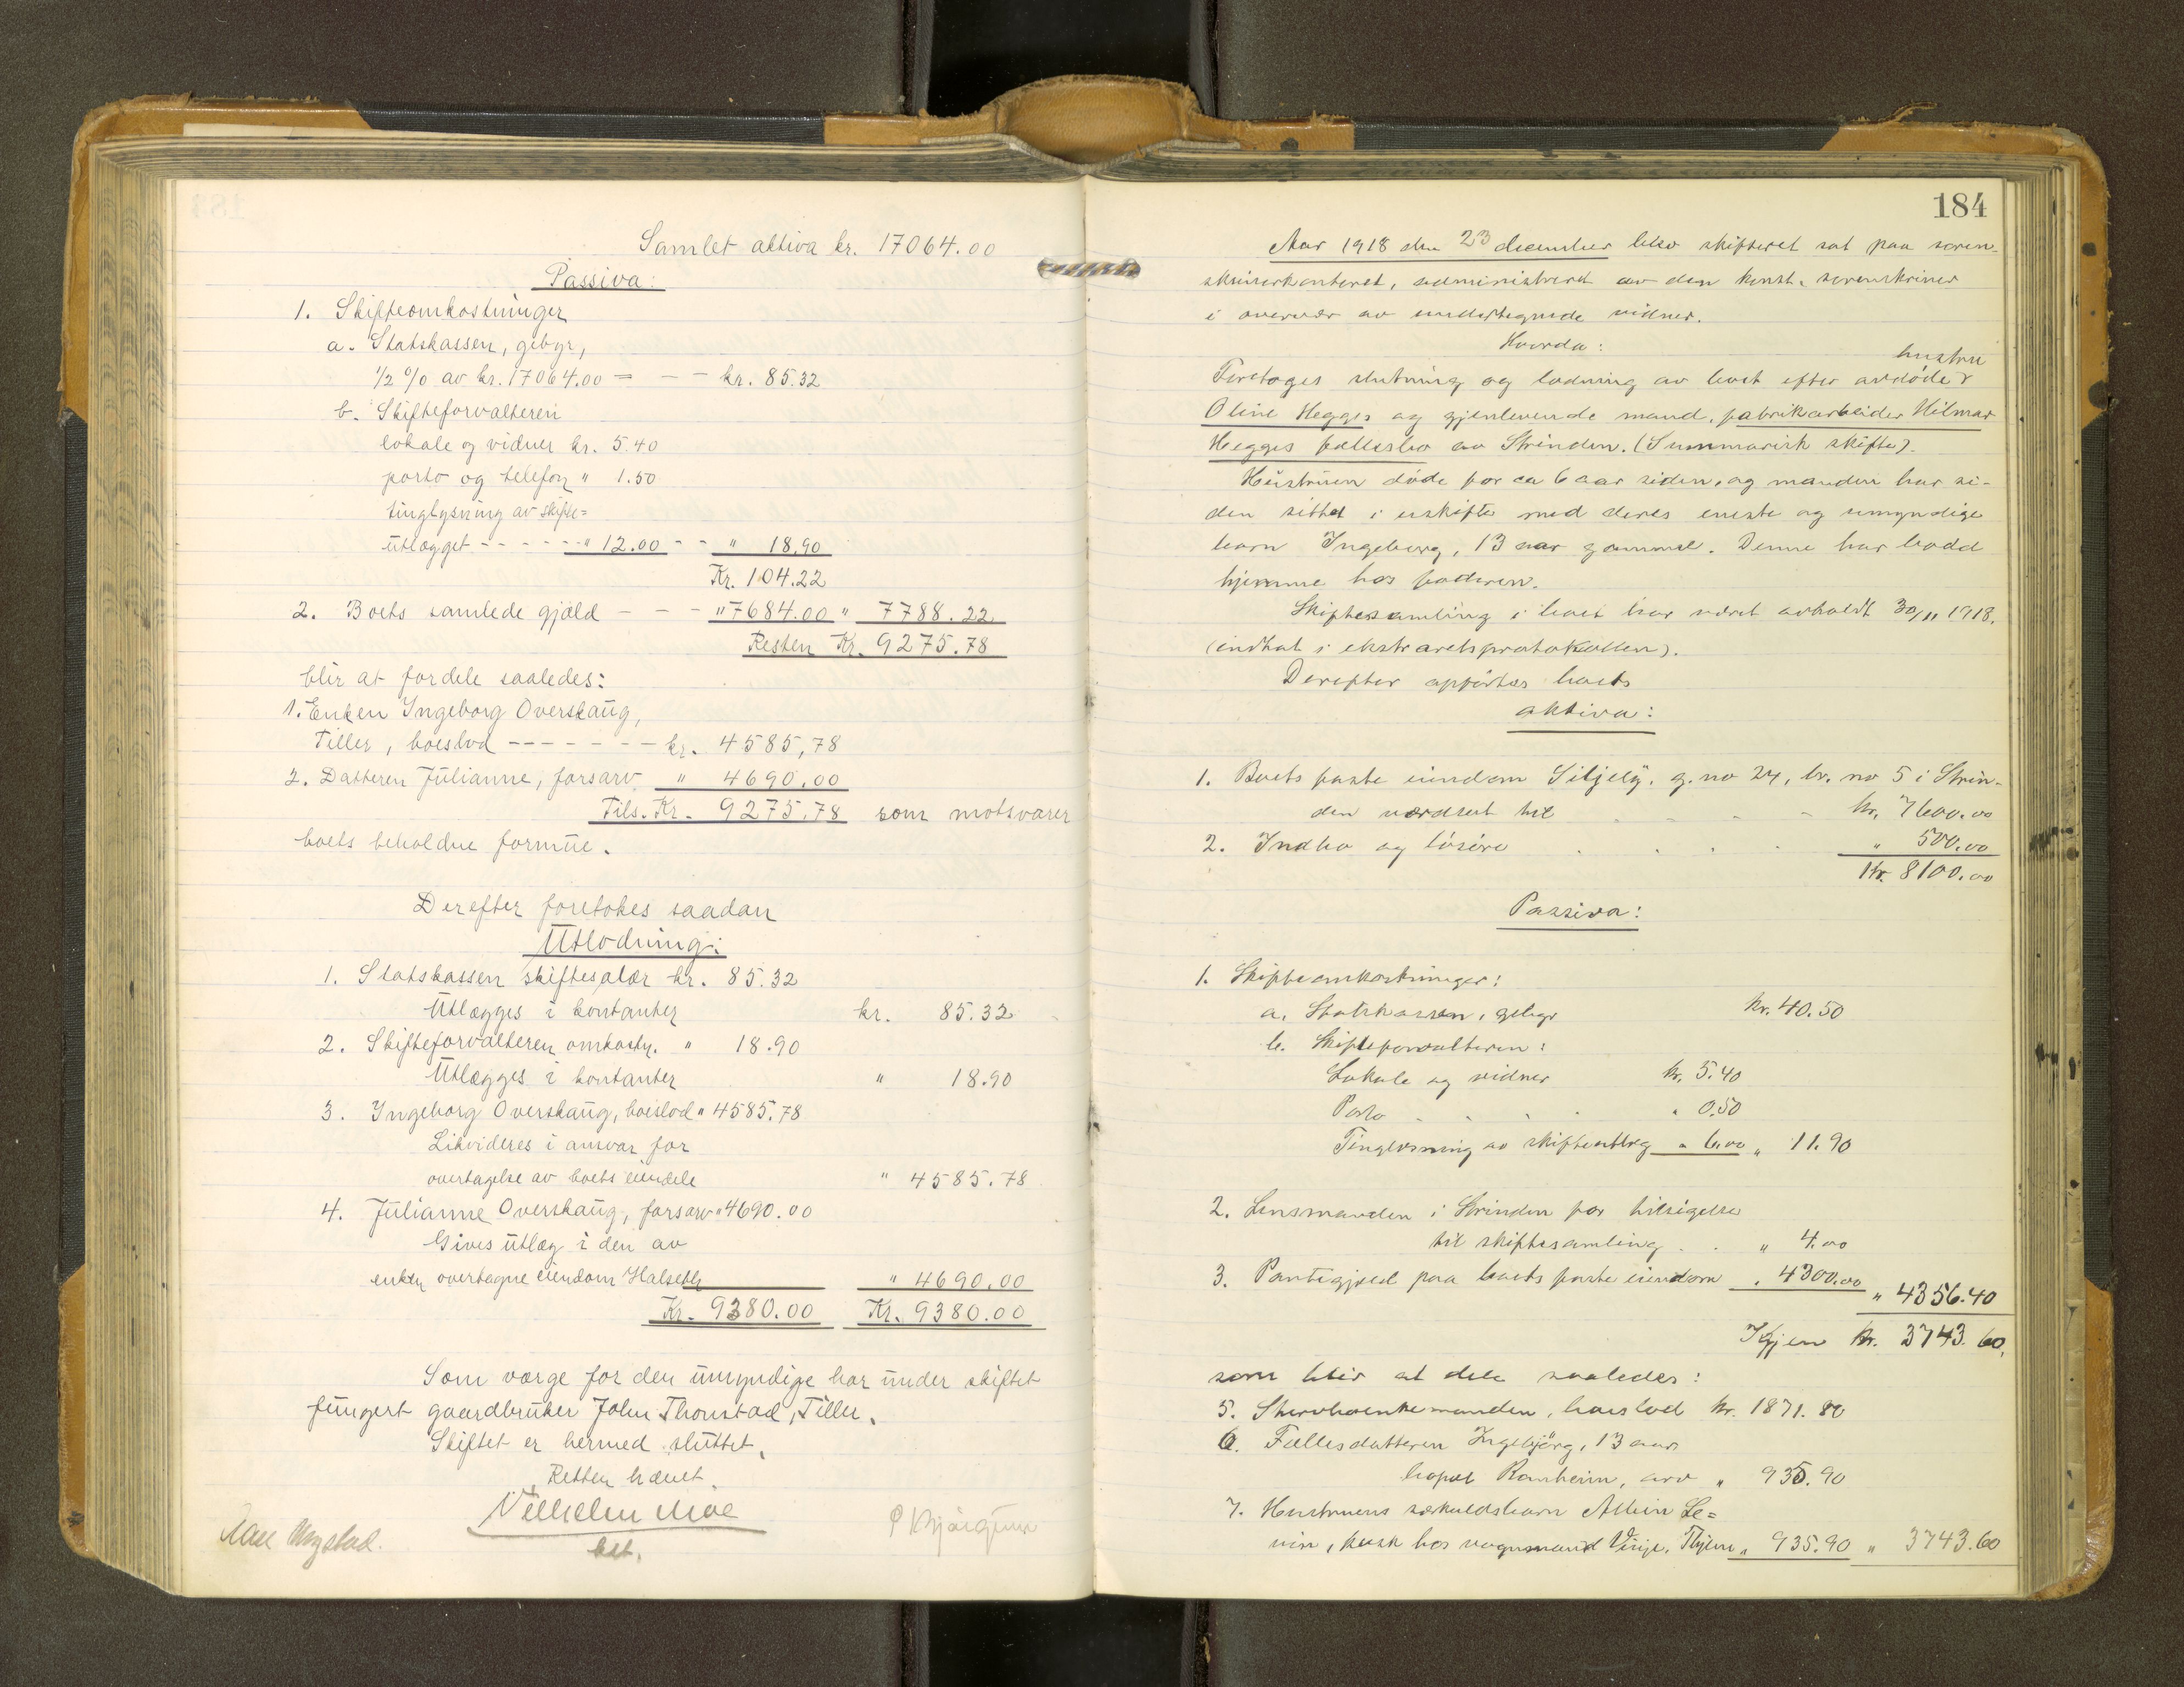 Samlet aktiva kr. 17064.00
Passiva:
1. Skifteomkostninger
a. Statskassen, gebyr,
1/2 % av kr. 17064.00 = - - kr. 85.32
b. Skifteforvalteren
lokale og vidner kr. 5.40
porto og telefon " 1.50
tinglysning av skifte=
utlægget - - - - - " 12.00 - - " 18.90
Kr. 104.22
2. Boets samlede gjæld - - - " 7684.00 " 7788.22
Resten Kr. 9275.78
blir at fordele saaledes:
1. Enken Ingeborg Overskaug,
Tiller, boeslod - - - - - - kr. 4585,78
2. Datteren Julianne, farsarv " 4690.00
Tils. Kr. 9275,78 som motsvarer
boets beholdne formue.
Derefter foretokes saadan
Utlodning:
1. Statskassen skiftesalær kr. 85.32
Utlægges i kontanter kr. 85.32
2. Skifteforvalteren omkostn. " 18.90
Utlægges i kontanter " 18.90
3. Ingeborg Overskaug, boeslod " 4585.78
Likvideres i ansvar for
overtagelse av boets eiendele " 4585.78
4. Julianne Overskaug, farsarv " 4690.00
Gives utlæg i den av
enken overtagne eiendom Halseth " 4690.00
Kr. 9380.00 Kr. 9380.00
Som værge for den umyndige har under skiftet
fungert gaardbruker John Thonstad, Tiller.
Skiftet er hermed sluttet.
Retten hævet.
Vilhelm Moe
kst.
184
Aar 1918 den 23 december blev skifteret sat paa soren-
skriverkontoret, administrert av den konst. sorenskriver
i overvær av undertegnede vidner.
Hvorda:
Foretoges slutning og lodning av boet efter avdøde hustru
Oline Hegges og gjenlevende mand, fabrikarbeider Hilmar
Hegges fællesbo av Strinden. (Summarisk skifte).
Hustruen døde for ca 6 aar siden, og manden har si-
den sittet i uskifte med deres eneste og umyndige
barn Ingeborg, 13 aar gammel. Denne har bodd
hjemme hos faderen.
Skiftesamling i boet har været avholdt 30/11 1918.
(indtat i ekstraretsprotokollen).
Derefter opførtes boets
aktiva:
1. Boets faste eiendom Siljely, g. no 24, br. no 5 i Strin-
den værdsat til kr. 7600.00
2. Indbo og løsøre " 500.00
Kr. 8100.00
Passiva:
1. Skifteomkostninger:
a. Statskassen, gebyr kr. 40.50
b. Skifteforvalteren:
Lokale og vidner kr. 5.40
Porto " 0.50
Tinglysning av skifteutlæg " 6.00 " 11.90
2. Lensmanden i Strinden for tilsigelse
til skiftesamling " 4.00
3. Pantegjæld paa boets faste eiendom " 4300.00 " 4356.40
Igjen kr. 3743.60,
som blir at dele saaledes:
5. Stervboenkemanden, boeslod kr. 1871.80
6. Fællesdatteren Ingebjørg, 13 aar
bopæl Ranheim, arv " 935.90
7. Hustruens særkuldsbarn Albin Le=
vin, kusk hos vognmand Vinje, Thjem " 935.90 " 3743.60